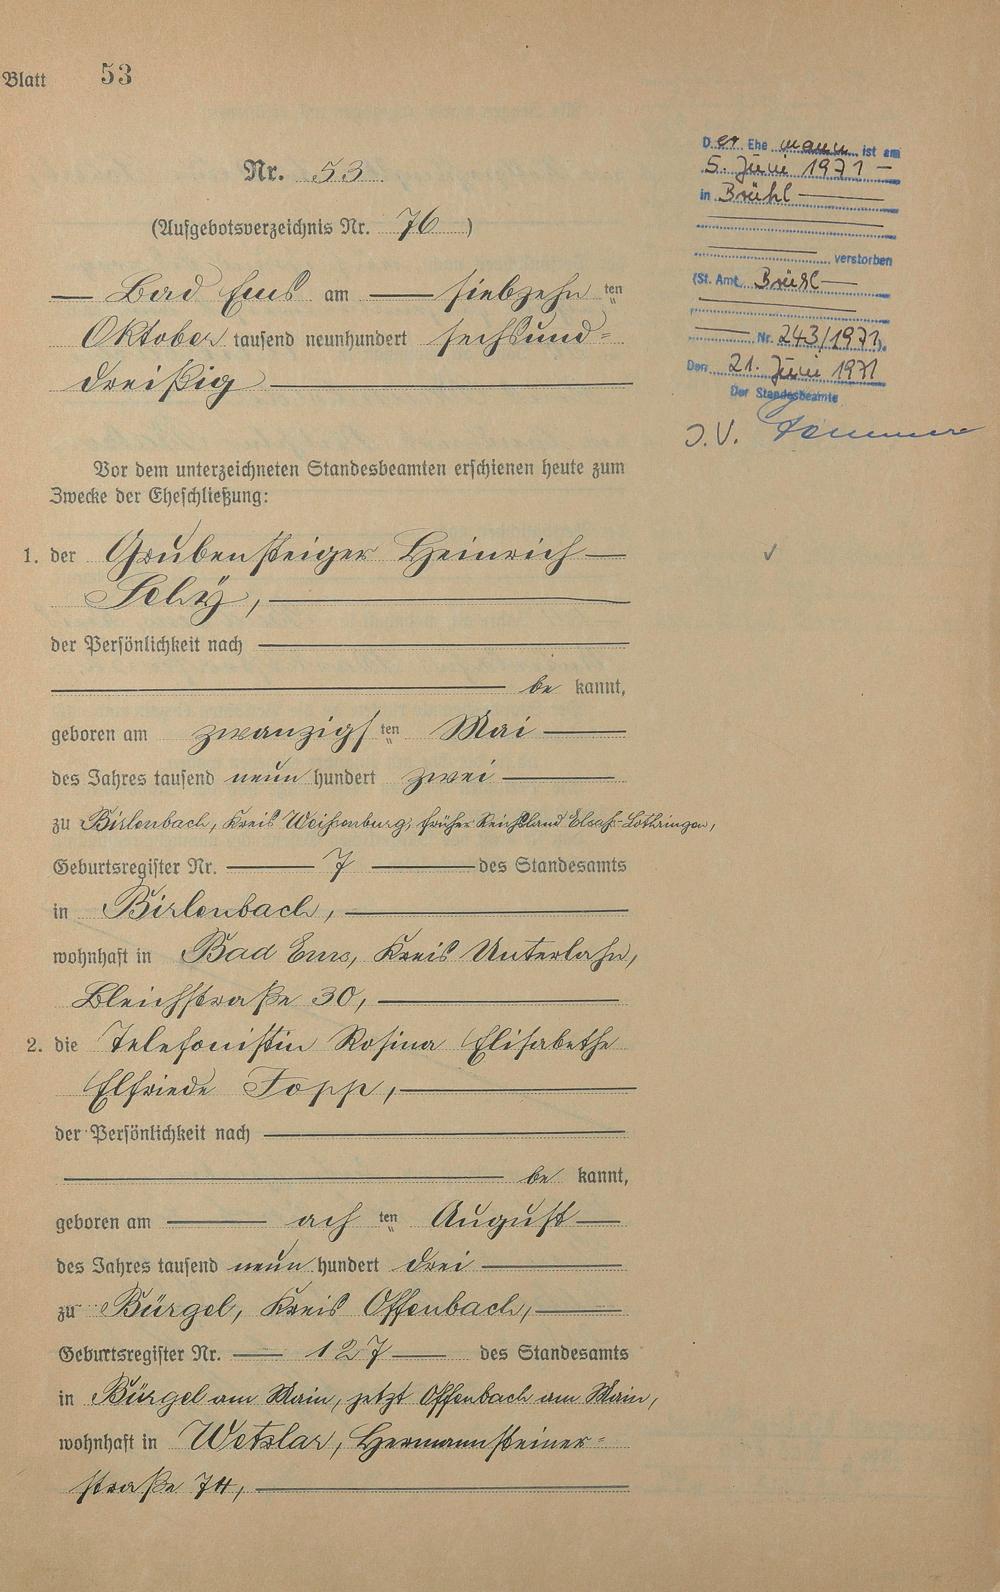 Blatt 53
Nr. 53
(Aufgebotsverzeichnis Nr. 76)
Bad Ems am siebzehn ten
Oktober tausend neunhundert sechsund-
dreißig
Vor dem unterzeichneten Standesbeamten erschienen heute zum
Zwecke der Eheschließung:
1. der Grubensteiger Heinrich
der Persönlichkeit nach
be kannt,
geboren am zwanzigs ten Mai
des Jahres tausend neun hundert zwei
zu Birlenbach, Kreis Weißenburg, früher Reichsland Elsaß-Lothringen,
Geburtsregister Nr. 7 des Standesamts
in Birlenbach,
wohnhaft in Bad Ems, Kreis Unterlahn,
Bleichstraße 30,
2. die Telefonistin Rosina Elisabethe
Elfriede Topp,
der Persönlichkeit nach
be kannt,
geboren am ach ten August
des Jahres tausend neun hundert drei
zu Bürgel, Kreis Offenbach,
Geburtsregister Nr. 127 des Standesamts
in Bürgel am Main, jetzt Offenbach am Main,
wohnhaft in Wetzlar, Hermannsteiner-
straße 74,
Der Ehemann ist am
5. Juni 1971
in Brühl
verstorben
(St. Amt Brühl
Nr. 243/1971).
Den 21. Juni 1971
Der Standesbeamte
J.V.